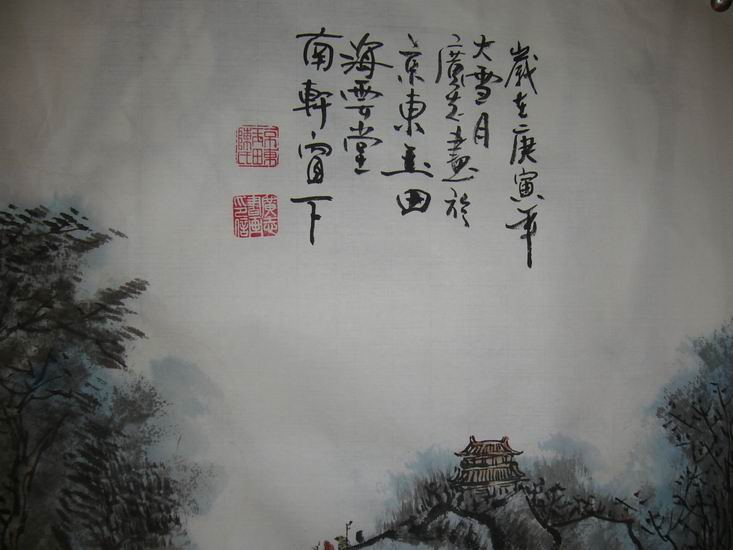 歲在庚寅年
大雪月
廣志畫於
京東玉田
海雲堂
南軒窗下